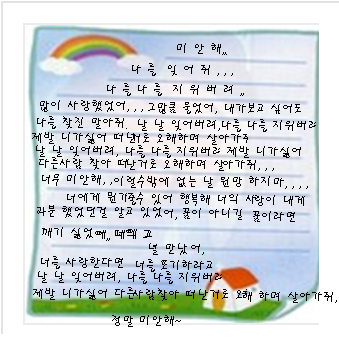 미안해,,
나를 잊어줘,,,
나를 나를 지워버려,,
많이 사랑했었어,,, 그만큼 울었어, 내가보고 싶어도
나를 찾진 말아줘, 날 날 잊어버려,나를 나를 지워버려
제발 니가싫어 떠난걸로 오해하며 살아가줘
날 날 잊어버려, 나를 나를 지워버려 제발 니가싫어
다른사람 찾아 떠난거로 오해하며 살아가줘,,,
너무 미안해,,이럴수밖에 없는 날 원망 하지마,,,,
너에게 뭔가할수 있어 행복해 너의 사랑이 내게
과분 했었던걸 알고 있었어, 꿈이 아니길 꿈이라면
깨기 싫었어,,
널 만났어,
너를 사랑한다면 너를 포기하라고
날 날 잊어버려, 나를 나를 지워버려
제발 니가싫어 다른사람찾아 떠난거로 오해 하며 살아가줘,
정말 미안해~